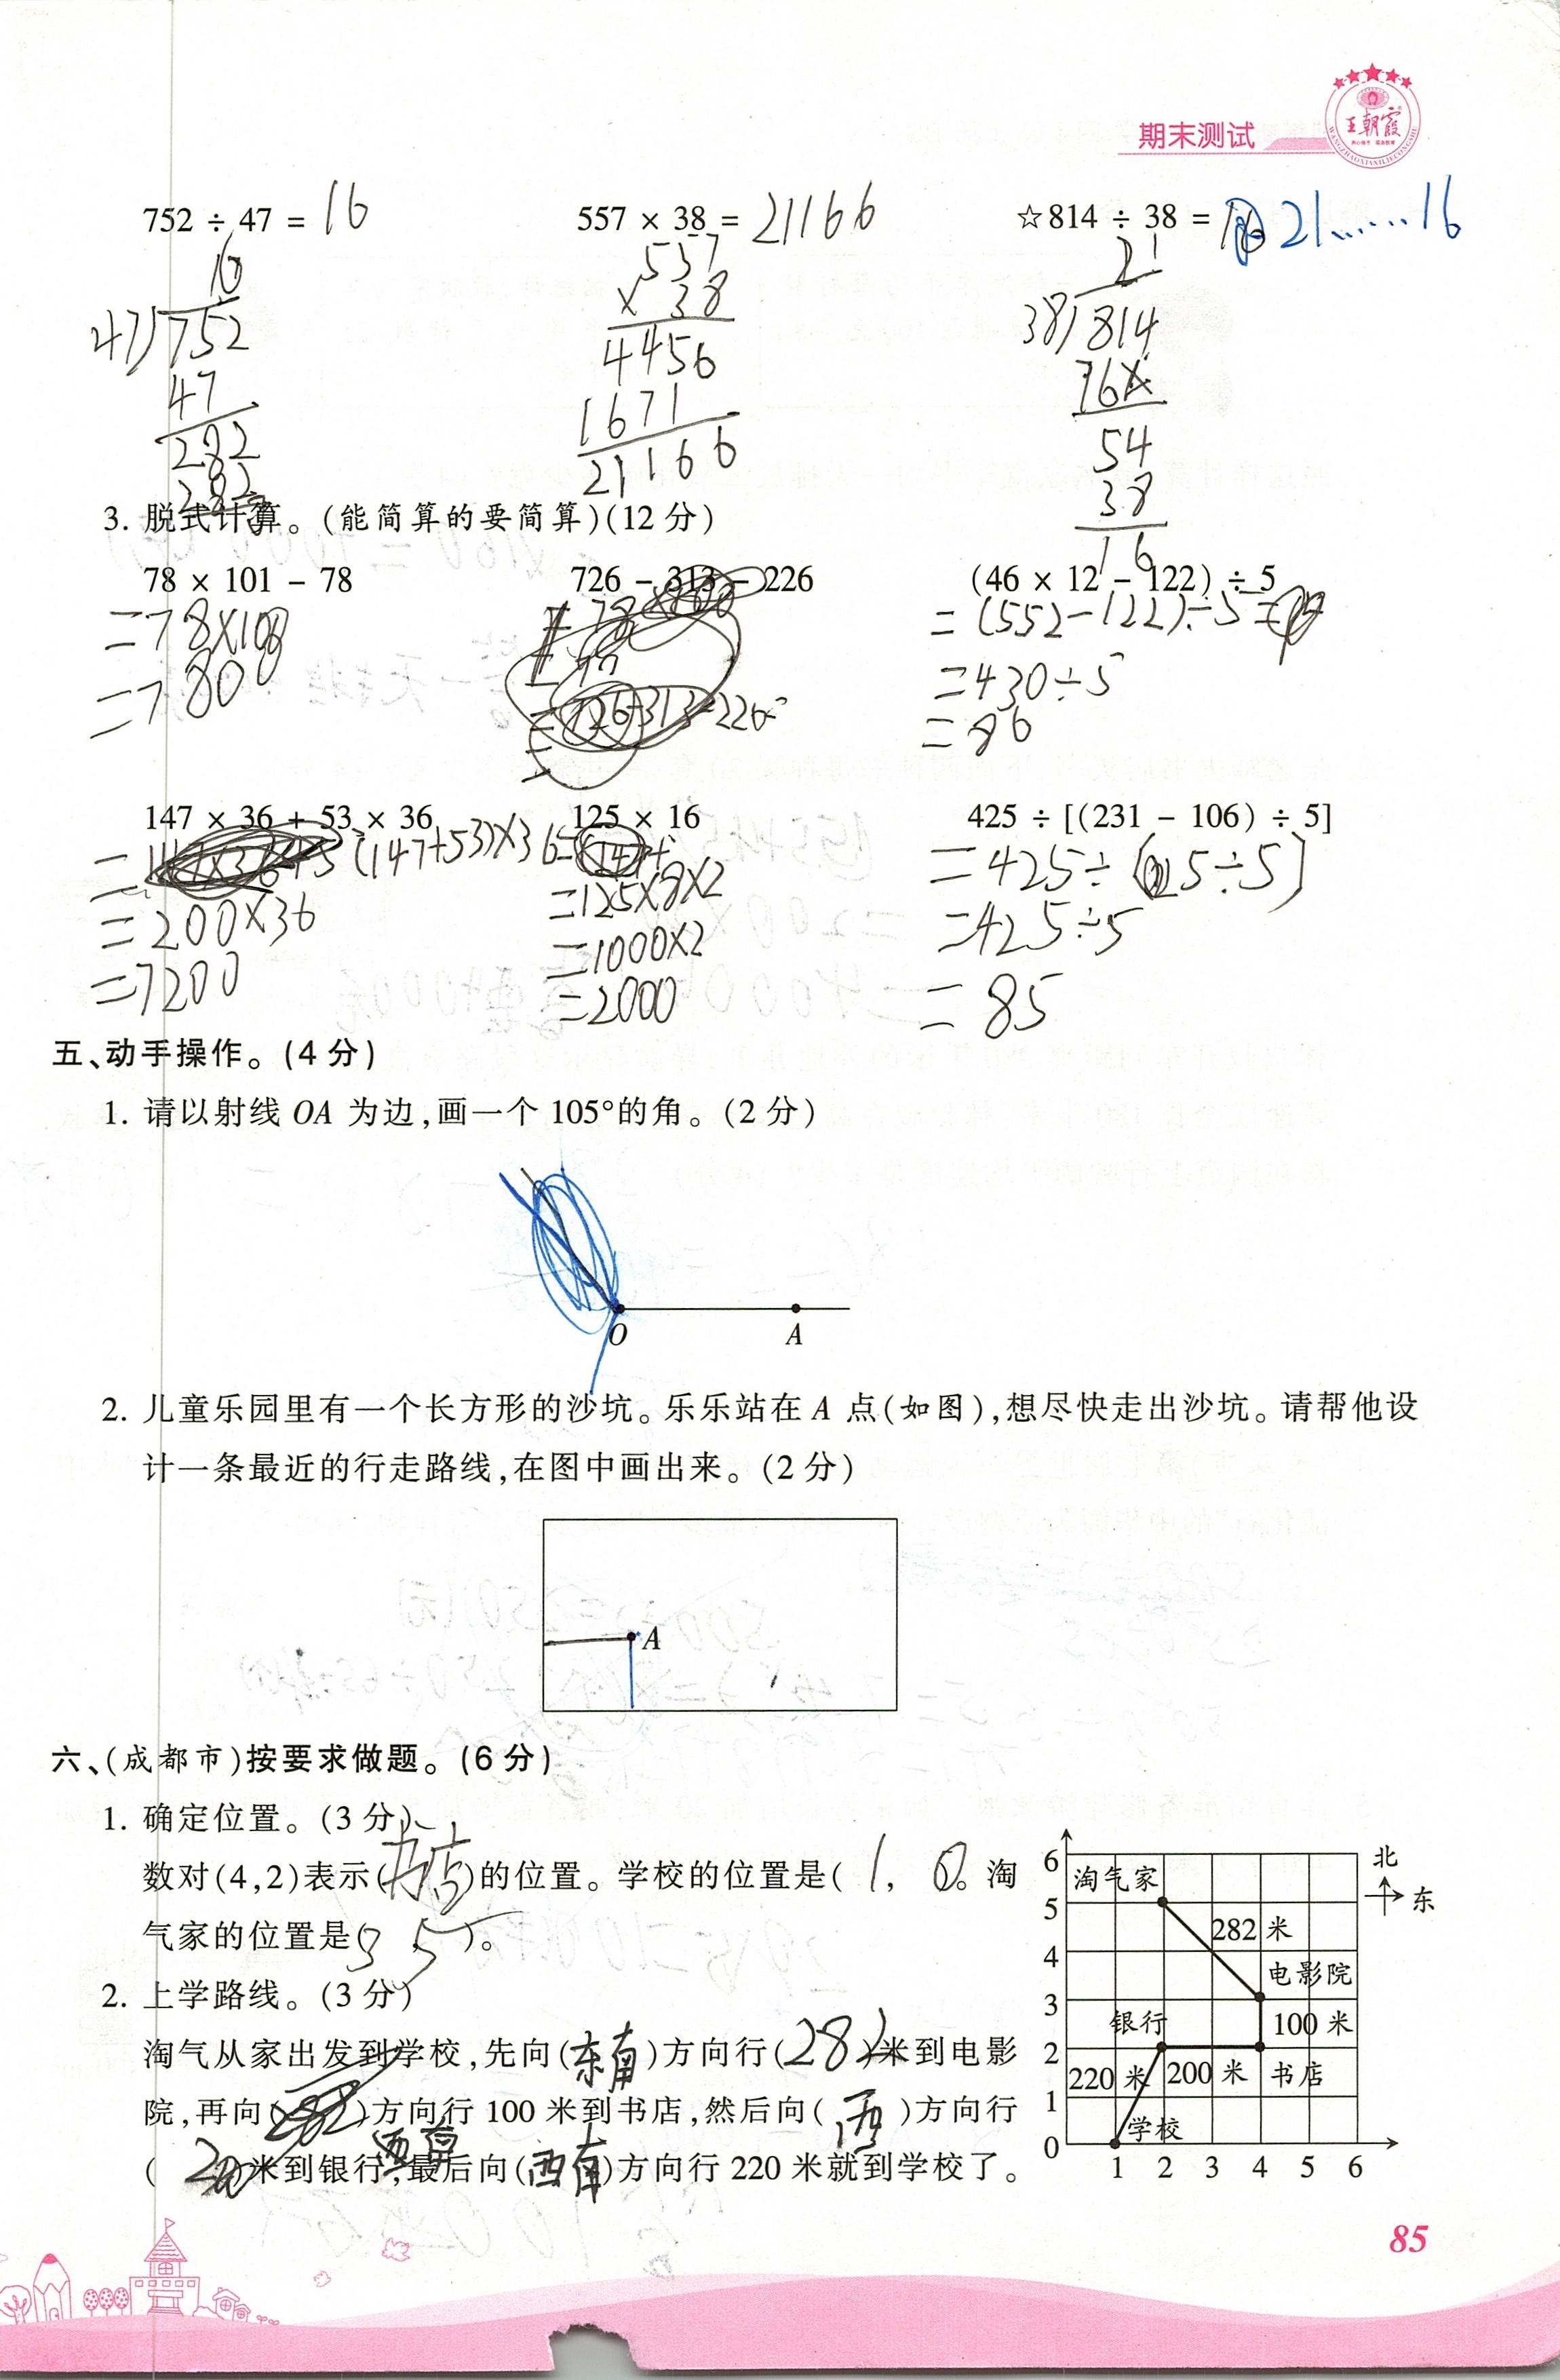 期末测试
王朝霞
752 ÷ 47 = 16
557 × 38 = 21166
☆814 ÷ 38 = 21……16
16
47)752
47
282
282
0
557
× 38
4456
1671
21166
21
38)814
76
54
38
16
3. 脱式计算。(能简算的要简算)(12 分)
78 × 101 - 78
=78×100
=7800
726 - 313 - 226
(46 × 12 - 122) ÷ 5
=(552-122)÷5
=430÷5
=86
147 × 36 + 53 × 36
=(147+53)×36
=200×36
=7200
125 × 16
=125×8×2
=1000×2
=2000
425 ÷ [(231 - 106) ÷ 5]
=425÷(25÷5)
=425÷5
=85
五、动手操作。(4 分)
1. 请以射线 OA 为边,画一个 105°的角。(2 分)
O
A
2. 儿童乐园里有一个长方形的沙坑。乐乐站在 A 点(如图),想尽快走出沙坑。请帮他设
计一条最近的行走路线,在图中画出来。(2 分)
A
六、(成都市)按要求做题。(6 分)
1. 确定位置。(3 分)
数对(4,2)表示(书店)的位置。学校的位置是( 1, 0)。淘
气家的位置是(3 5)。
2. 上学路线。(3 分)
淘气从家出发到学校,先向(东南)方向行(282)米到电影
院,再向( )方向行 100 米到书店,然后向( 西 )方向行
( )米到银行,最后向(西南)方向行 220 米就到学校了。
6
5
4
3
2
1
0
1 2 3 4 5 6
淘气家
282 米
电影院
银行
100 米
220 米
200 米
书店
学校
北
东
85